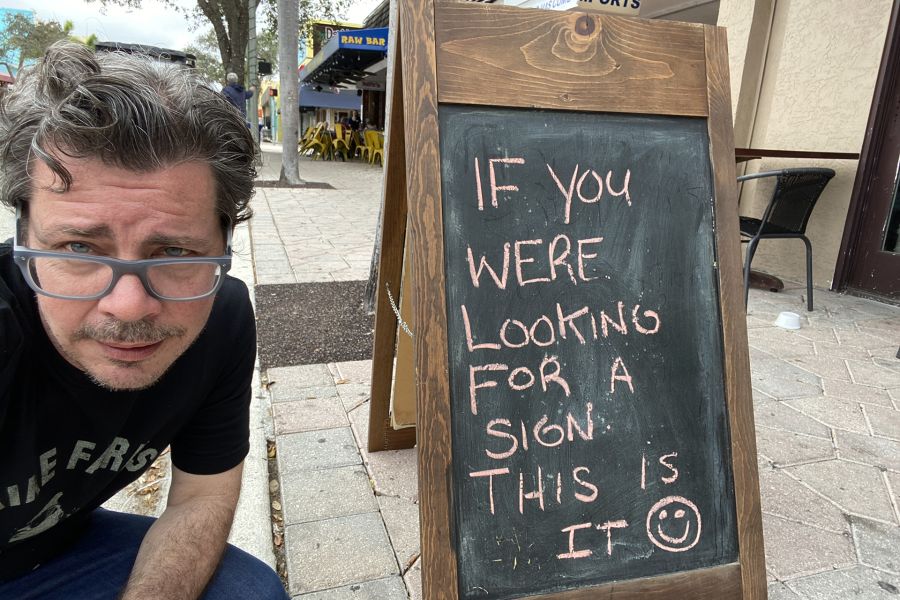 PORTS
RAW BAR
IF YOU
WERE
LOOKING
FOR A
SIGN
THIS IS
IT